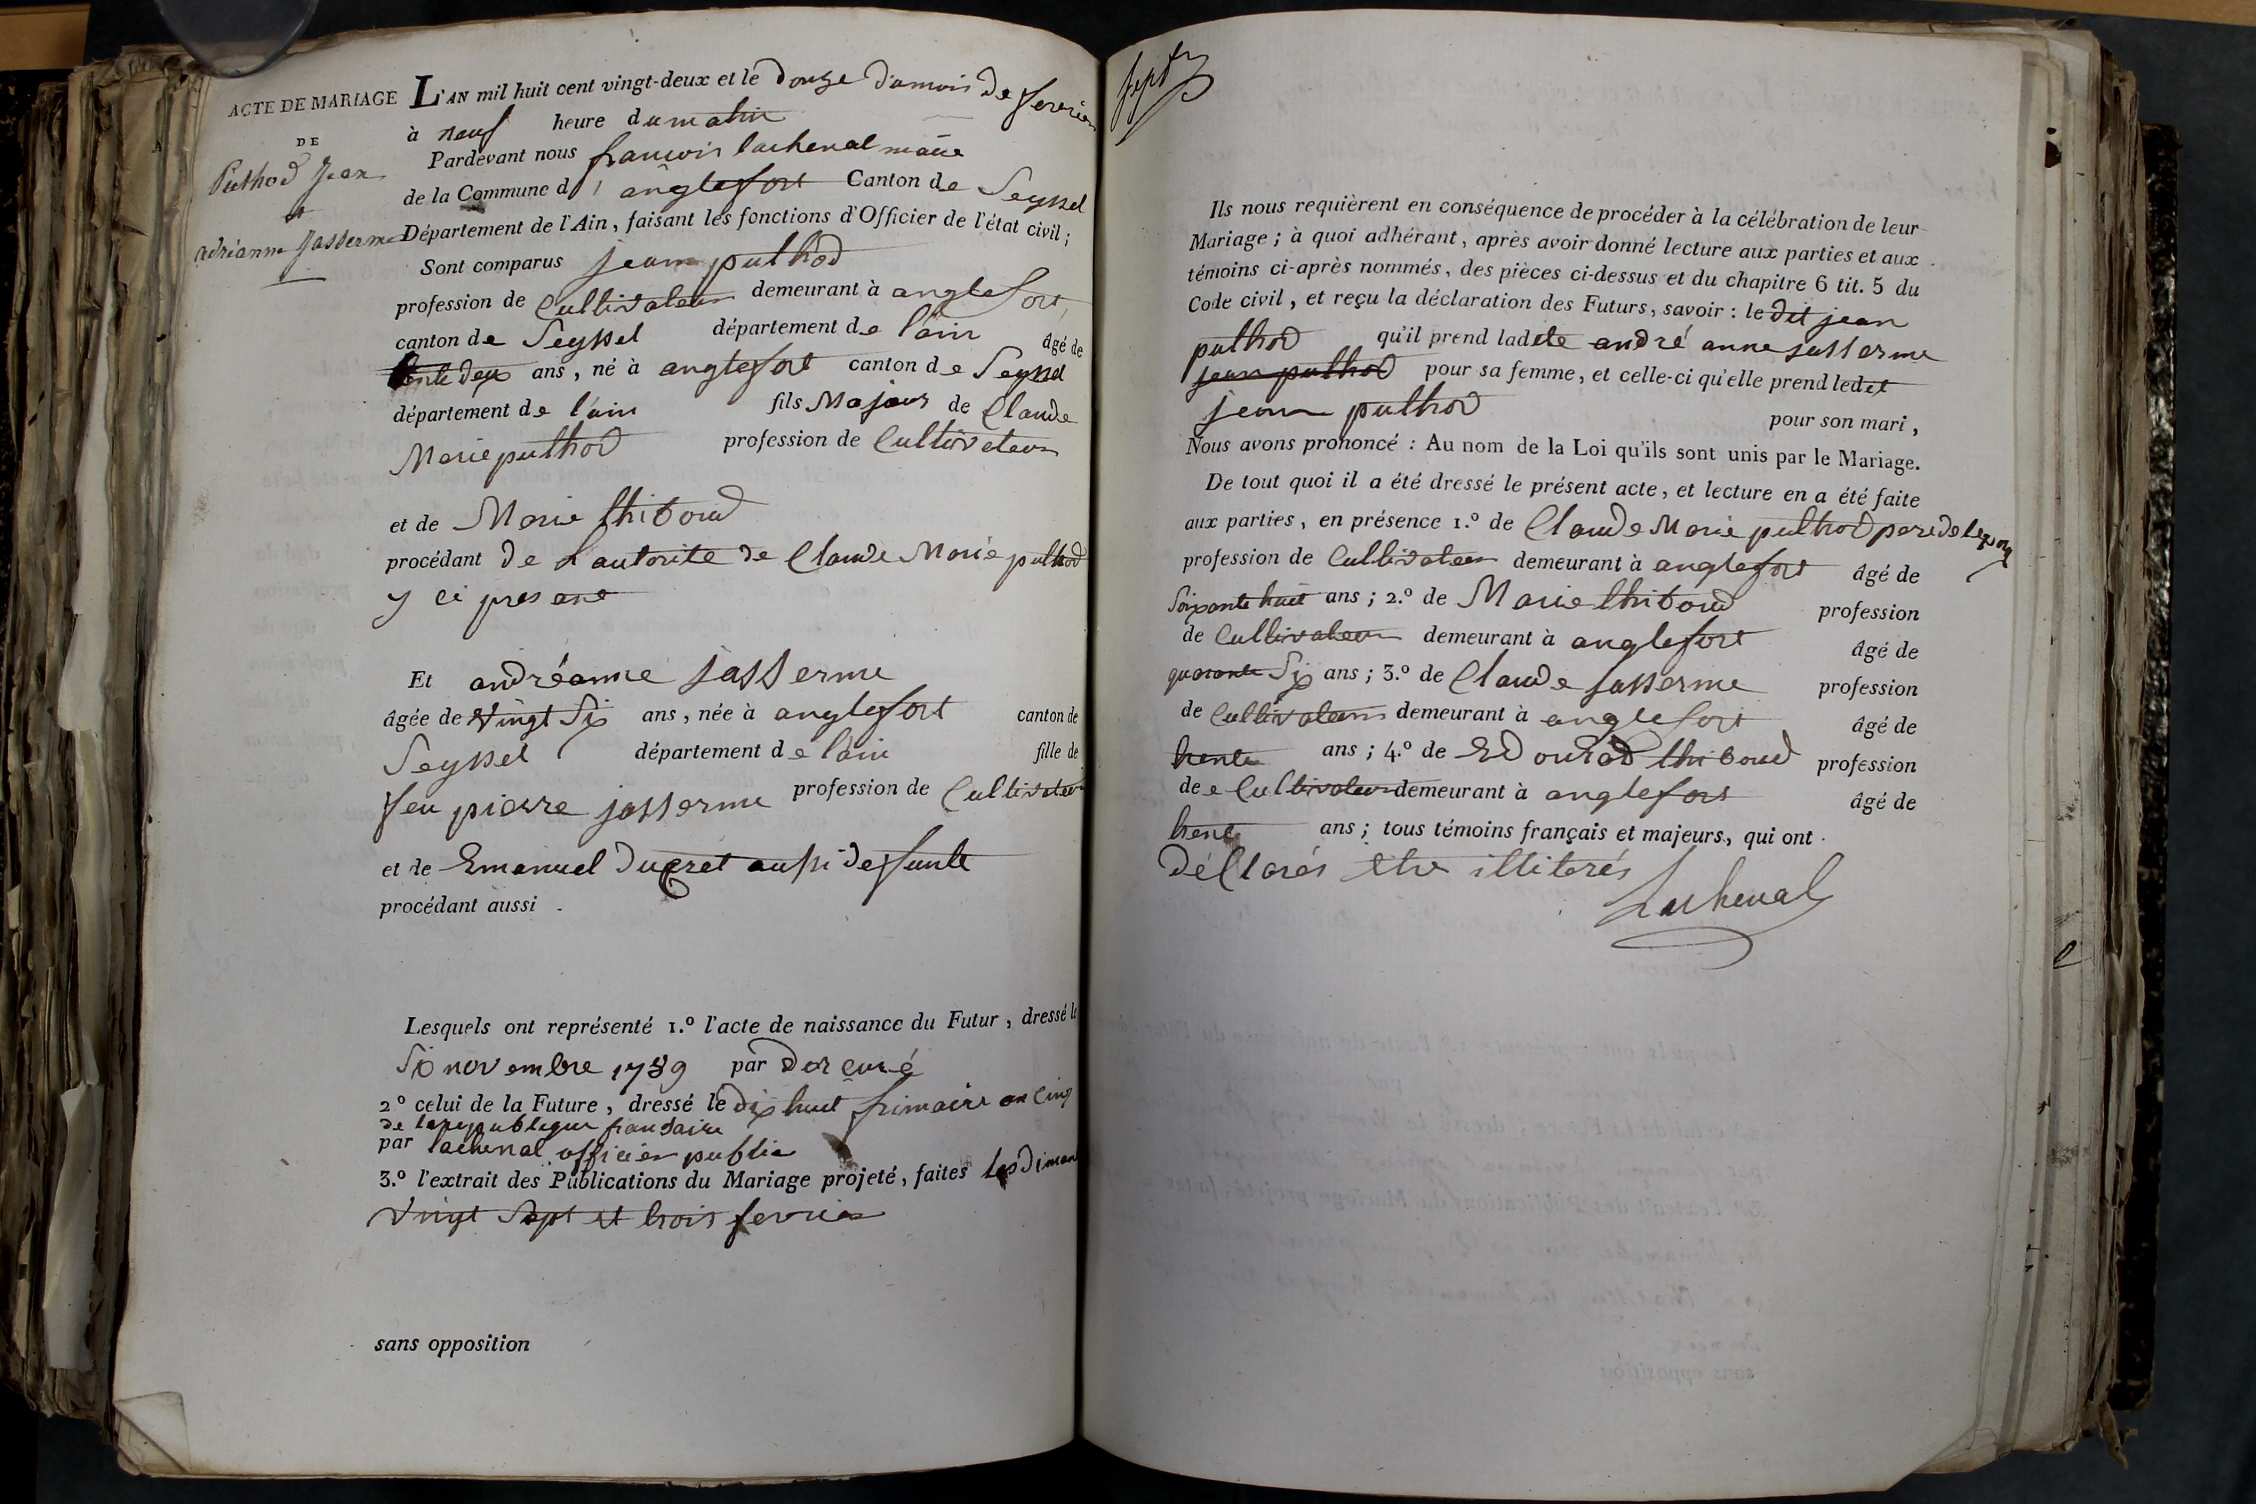 ACTE DE MARIAGE
DE
Puthod Jean
et
adrianne Jasserme
L'AN mil huit cent vingt-deux et le douze dumois de fevrier
à neuf heure dumatin
Pardevant nous françois lachenal maire
de la Commune d'anglefort Canton de Seyssel
Département de l'Ain, faisant les fonctions d'Officier de l'état civil;
Sont comparus jean puthod
profession de Cultivateur demeurant à anglefort,
canton de Seyssel département de l'ain âgé de
trente deux ans, né à anglefort canton de Seyssel
département de l'ain fils Majeur de Claude
Marie puthod profession de Cultivateur
et de Marie thiboud
procédant de L'autorité de Claude Marie puthod
y ci present
Et andréanne jasserme
âgée de vingt Six ans, née à anglefort canton de
Seyssel département de l'ain fille de
feu pierre jasserme profession de Cultivateur
et de Emanuel ducret aussi defunte
procédant aussi
Lesquels ont représenté 1.º l'acte de naissance du Futur, dressé le
Six novembre 1789 par curé
2º celui de la Future, dressé le dix huit frimaire an Cinq
de la republique francaire
par lachenal officier public
3.º l'extrait des Publications du Mariage projeté, faites les diman
vingt Sept et trois fevrier
sans opposition
sept
Ils nous requièrent en conséquence de procéder à la célébration de leur
Mariage; à quoi adhérant, après avoir donné lecture aux parties et aux
témoins ci-après nommés, des pièces ci-dessus et du chapitre 6 tit. 5 du
Code civil, et reçu la déclaration des Futurs, savoir: le dit jean
puthod qu'il prend ladete andré anne jasserme
jean puthod pour sa femme, et celle-ci qu'elle prend ledet
jean puthod pour son mari,
Nous avons prononcé: Au nom de la Loi qu'ils sont unis par le Mariage.
De tout quoi il a été dressé le présent acte, et lecture en a été faite
aux parties, en présence 1.º de Claude Marie puthod pere de lepoux
profession de Cultivateur demeurant à anglefort âgé de
Soixante huit ans; 2.º de Marie thiboud profession
de Cultivateur demeurant à anglefort âgé de
quarante Six ans; 3.º de Claude jasserme profession
de Cultivateur demeurant à anglefort âgé de
trente ans; 4.º de Edouard thiboud profession
de e Cultivateur demeurant à anglefort âgé de
trente ans; tous témoins français et majeurs, qui ont
déClarés etre illiterés
Lachenal